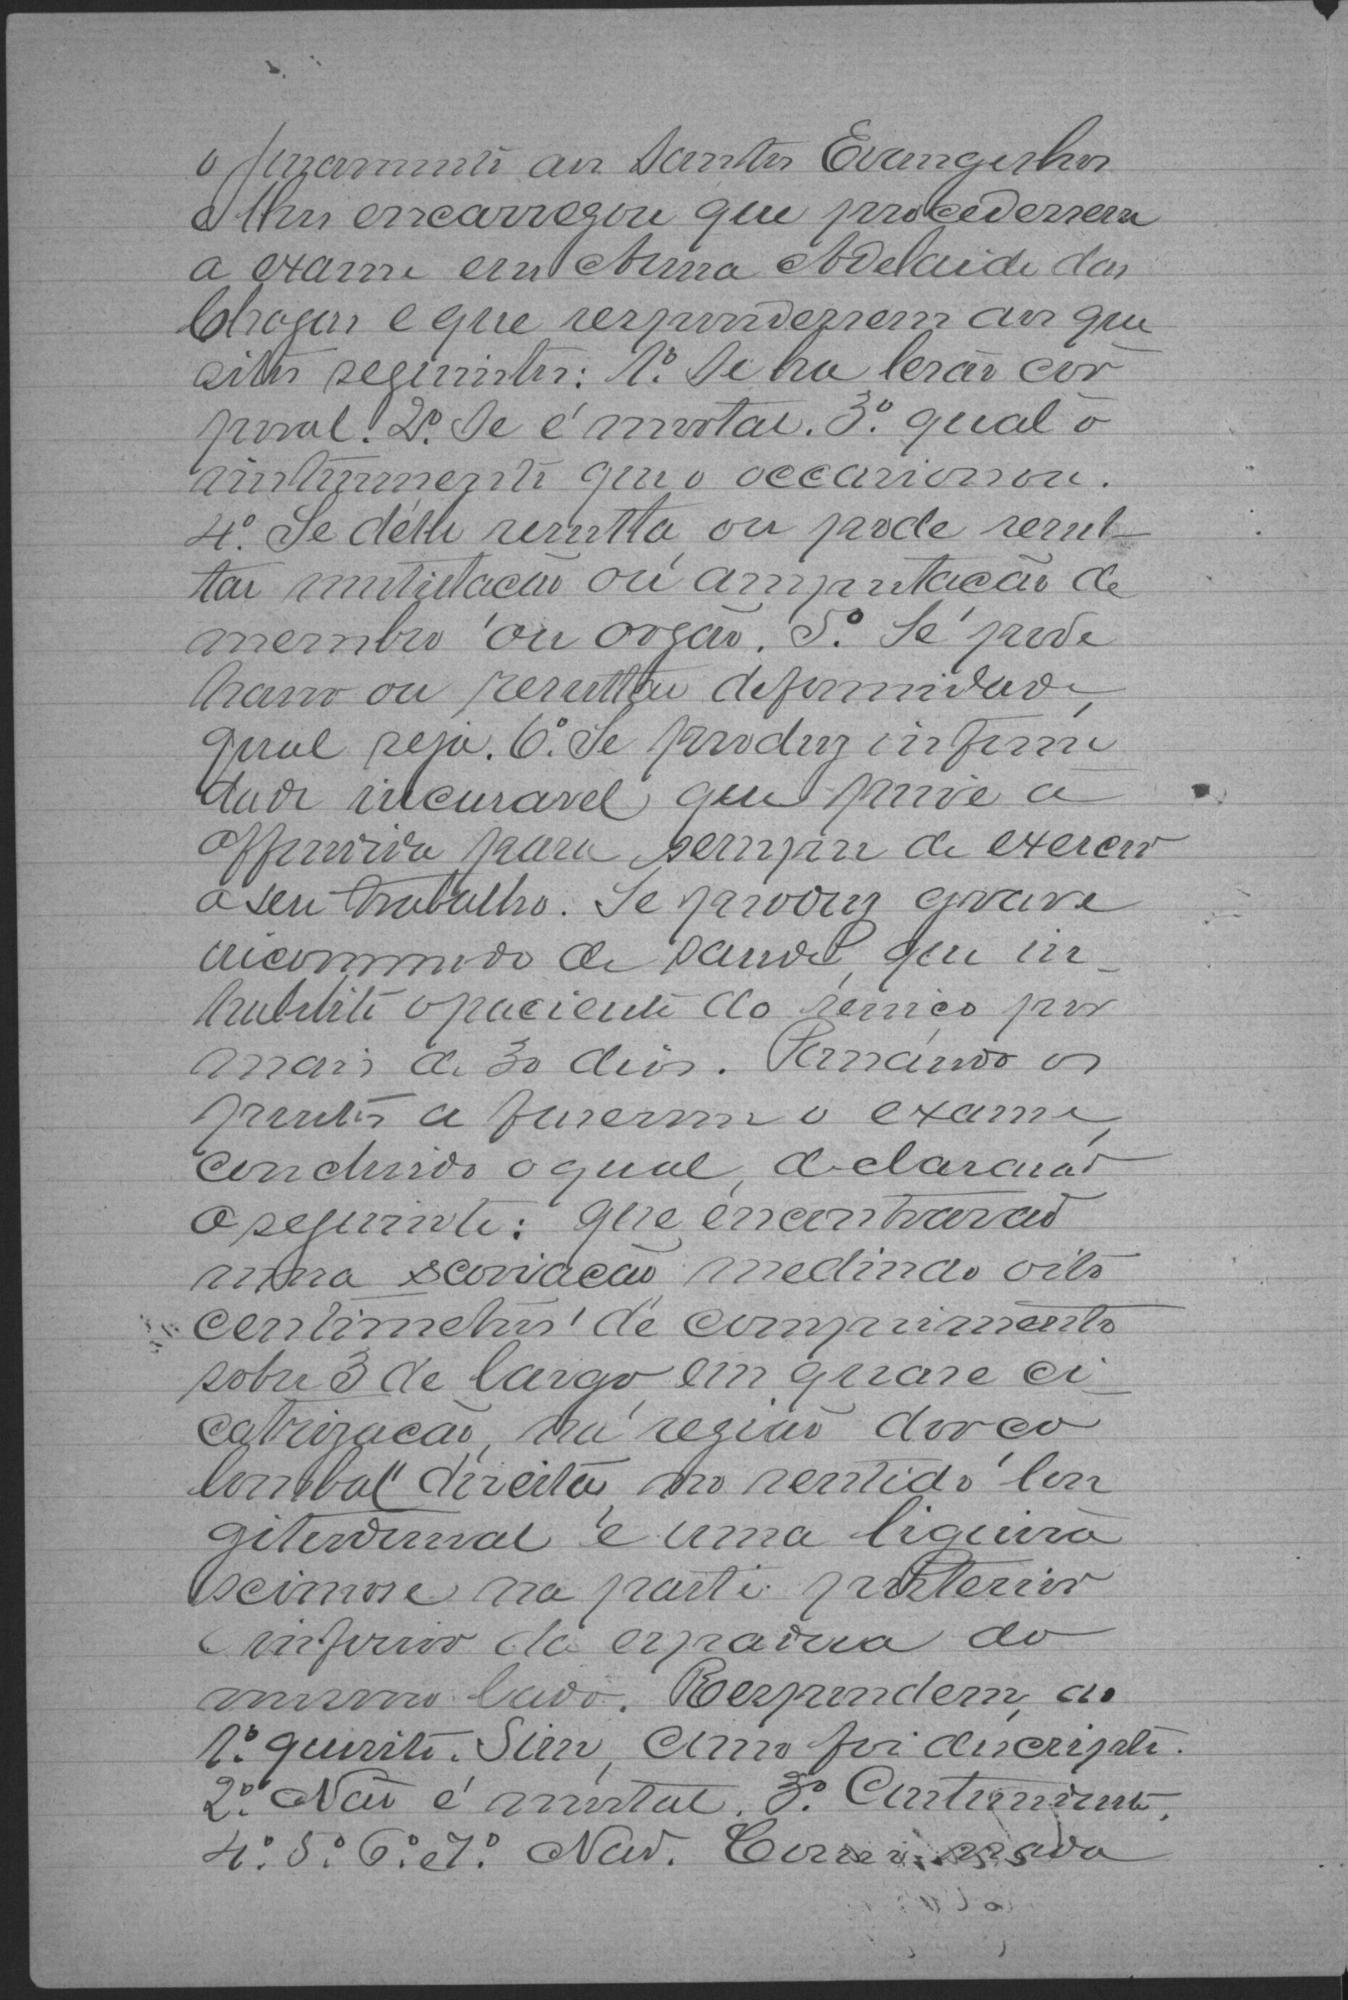 o juramento aos Santos Evangelhos
e lhes encarregou que procedessem
a exame em Anna Adelaide das
Chagas e que respondessem aos que
sitos seguintes: 1º. Se ha lesão cor
poral. 2º. Se é mortal. 3º. qual o
instrumento que o occasionou.
4º. Se délle resulta ou pode resul-
tar mutilação ou amputação de
membro ou orgão. 5º. Se pode
haver ou resultar deformidade,
qual seja. 6º. Se produz infermi
dade incuravel que prive a
offendida para sempre de exercer
o seu trabalho. Se produz grave
incommodo de saude, que in-
habilite o paciente do serviço por
mais de 30 dias. Passando os
peritos a fazerem o exame,
concluido o qual, declararão
o seguinte: que encontrarão
uma scoriação medindo oito
centimetros de comprimento
sobre 3 de largo em quase ci-
catrização, na região dorço
lombal direita no sentido lon
gitudinal e uma ligeira
scimose na parte posterior
inferior da espadua do
mesmo lado. Respondem, ao
1º. quisito. Sim, como foi descripto.
2º. Não é mortal. 3º. Contundente.
4º. 5º. 6º. e 7º. Não.